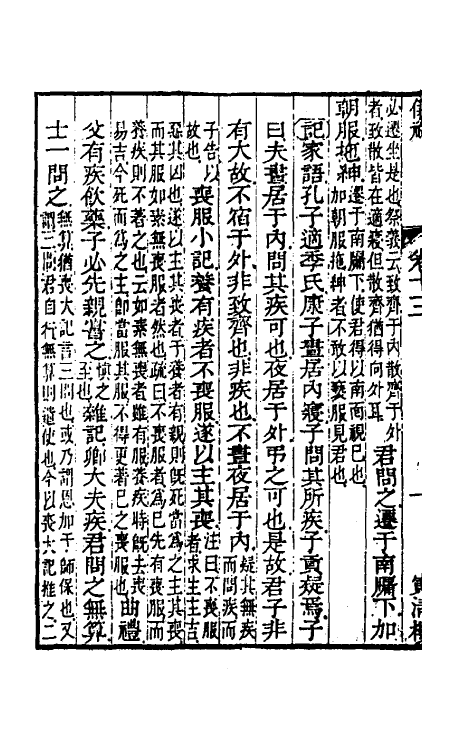 卷十三
一
必遷坐是也祭義云致齊于內散齊于外
者致散皆在適寢但散齊猶得向外耳
君問之遷于南牖下加
朝服拖紳
遷于南牖下使君得以南面視己也
加朝服拖紳者不敢以褻服見君也
記家語孔子適季氏康子晝居內寢子問其所疾子貢疑焉子
曰夫晝居于內問其疾可也夜居于外弔之可也是故君子非
有大故不宿于外非致齊也非疾也不晝夜居于內
疑其無疾
而問疾而
子告以
故也
喪服小記養有疾者不喪服遂以主其喪
注曰不喪服
者求生主吉
惡其凶也遂以主其喪者于養者有親則既死當爲之主其喪
而其服如素無喪服者然也疏曰不喪服者爲己先有喪服而
養疾則不著之也云如素無喪服者雖有服養疾時既去喪
易吉今死而爲之主卽當服其服不得更著己之喪服也
曲禮
父有疾飲藥子必先親嘗之
慎之
至也
雜記卿大夫疾君問之無算
士一問之
無算猶喪大記言三問也或乃謂恩加于師保也又
謂三問君自行無算則遣使也今以喪大記推之二